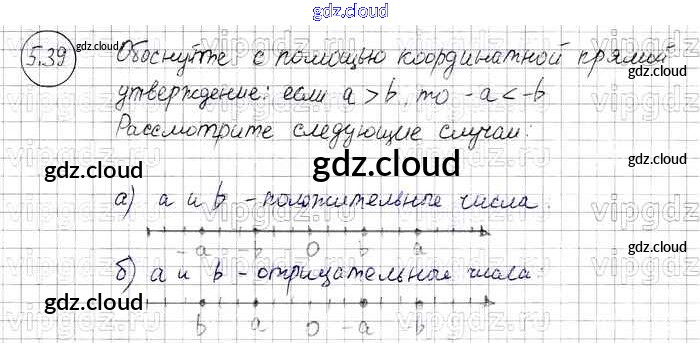 gdz.cloud
5.39 gdz.cloud Обоснуйте с помощью координатной прямой
утверждение: если a > b, то -a < -b
gdz.cloud
Рассмотрите следующие случаи:
gdz.cloud
gdz.cloud
а) a и b - положительные числа.
-a -b 0 b a
б) a и b - отрицательные числа:
gdz.cloud gdz.cloud
b a 0 -a -b